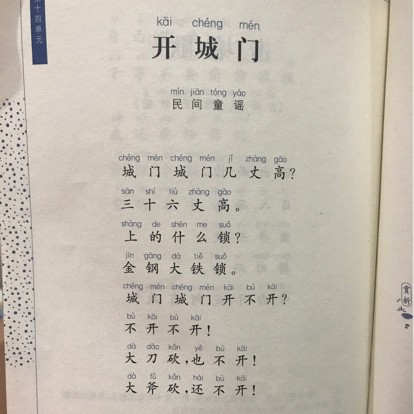 第十四单元
kāi chéng mén
开城门
mín jiān tóng yáo
民间童谣
chéng mén chéng mén jǐ zhàng gāo
城门城门几丈高？
sān shí liù zhàng gāo
三十六丈高。
shàng de shén me suǒ
上的什么锁？
jīn gāng dà tiě suǒ
金钢大铁锁。
chéng mén chéng mén kāi bù kāi
城门城门开不开？
bù kāi bù kāi
不开不开！
dà dāo kǎn yě bù kāi
大刀砍，也不开！
dà fǔ kǎn hái bù kāi
大斧砍，还不开！
赏析